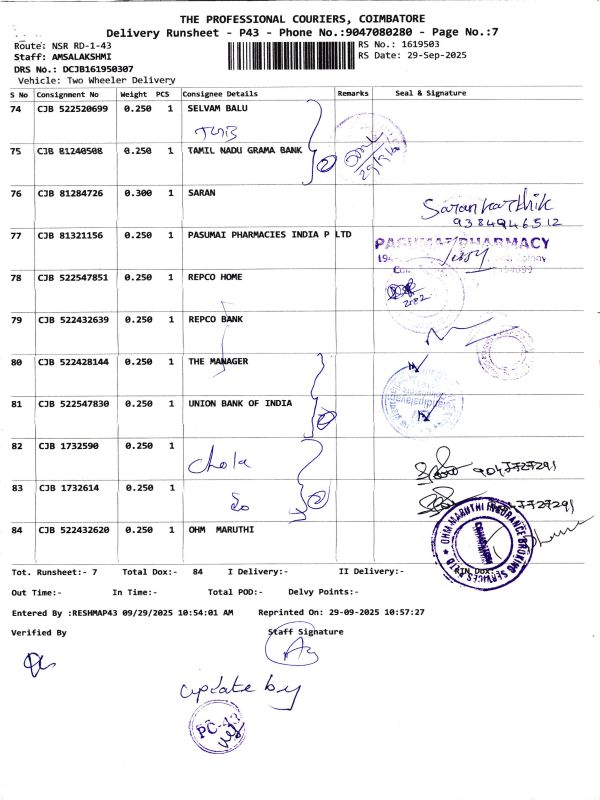 THE PROFESSIONAL COURIERS, COIMBATORE
Delivery Runsheet - P43 - Phone No.:9047080280 - Page No.:7
Route: NSR RD-1-43
RS No.: 1619503
Staff: AMSALAKSHMI
RS Date: 29-Sep-2025
DRS No.: DCJB161950307
Vehicle: Two Wheeler Delivery
S No Consignment No Weight PCS Consignee Details Remarks Seal & Signature
74 CJB 522520699 0.250 1 SELVAM BALU
TNGB
75 CJB 81240508 0.250 1 TAMIL NADU GRAMA BANK
2
76 CJB 81284726 0.300 1 SARAN
Sarankarthik
9384946512
77 CJB 81321156 0.250 1 PASUMAI PHARMACIES INDIA P LTD
PASUMAI PHARMACY
78 CJB 522547851 0.250 1 REPCO HOME
79 CJB 522432639 0.250 1 REPCO BANK
80 CJB 522428144 0.250 1 THE MANAGER
81 CJB 522547830 0.250 1 UNION BANK OF INDIA
2
82 CJB 1732590 0.250 1
Chola
83 CJB 1732614 0.250 1
2
84 CJB 522432620 0.250 1 OHM MARUTHI
OHM MARUTHI INSURANCE BROKING SERVICES
Tot. Runsheet:- 7 Total Dox:- 84 I Delivery:- II Delivery:-
Out Time:- In Time:- Total POD:- Delvy Points:-
Entered By :RESHMAP43 09/29/2025 10:54:01 AM Reprinted On: 29-09-2025 10:57:27
Verified By
Staff Signature
update by
PC-43